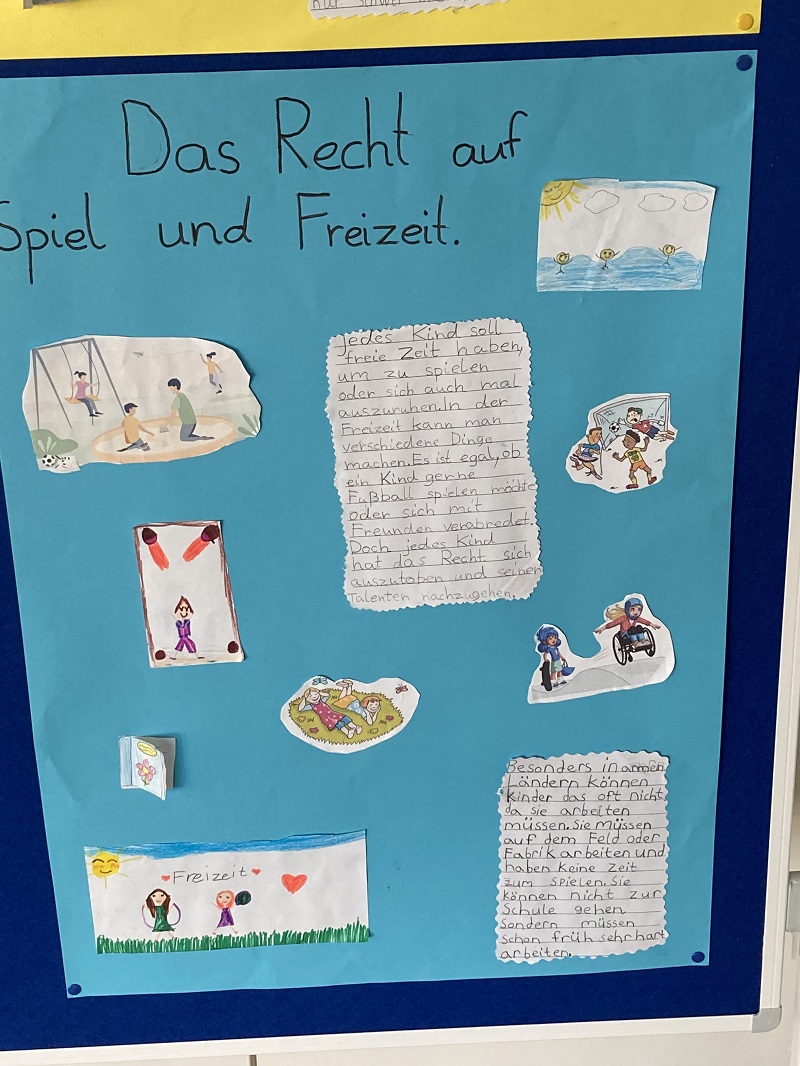 Das Recht auf
Spiel und Freizeit.
Jedes Kind soll
freie Zeit haben,
um zu spielen
oder sich auch mal
auszuruhen. In der
Freizeit kann man
verschiedene Dinge
machen. Es ist egal, ob
ein Kind gerne
Fußball spielen möchte
oder sich mit
Freunden verabredet.
Doch jedes Kind
hat das Recht sich
auszutoben und seinen
Talenten nachzugehen.
Besonders in armen
Ländern können
Kinder das oft nicht,
da sie arbeiten
müssen. Sie müssen
auf dem Feld oder
Fabrik arbeiten und
haben keine Zeit
zum spielen. Sie
können nicht zur
Schule gehen.
Sondern müssen
schon früh sehr hart
arbeiten.
Freizeit